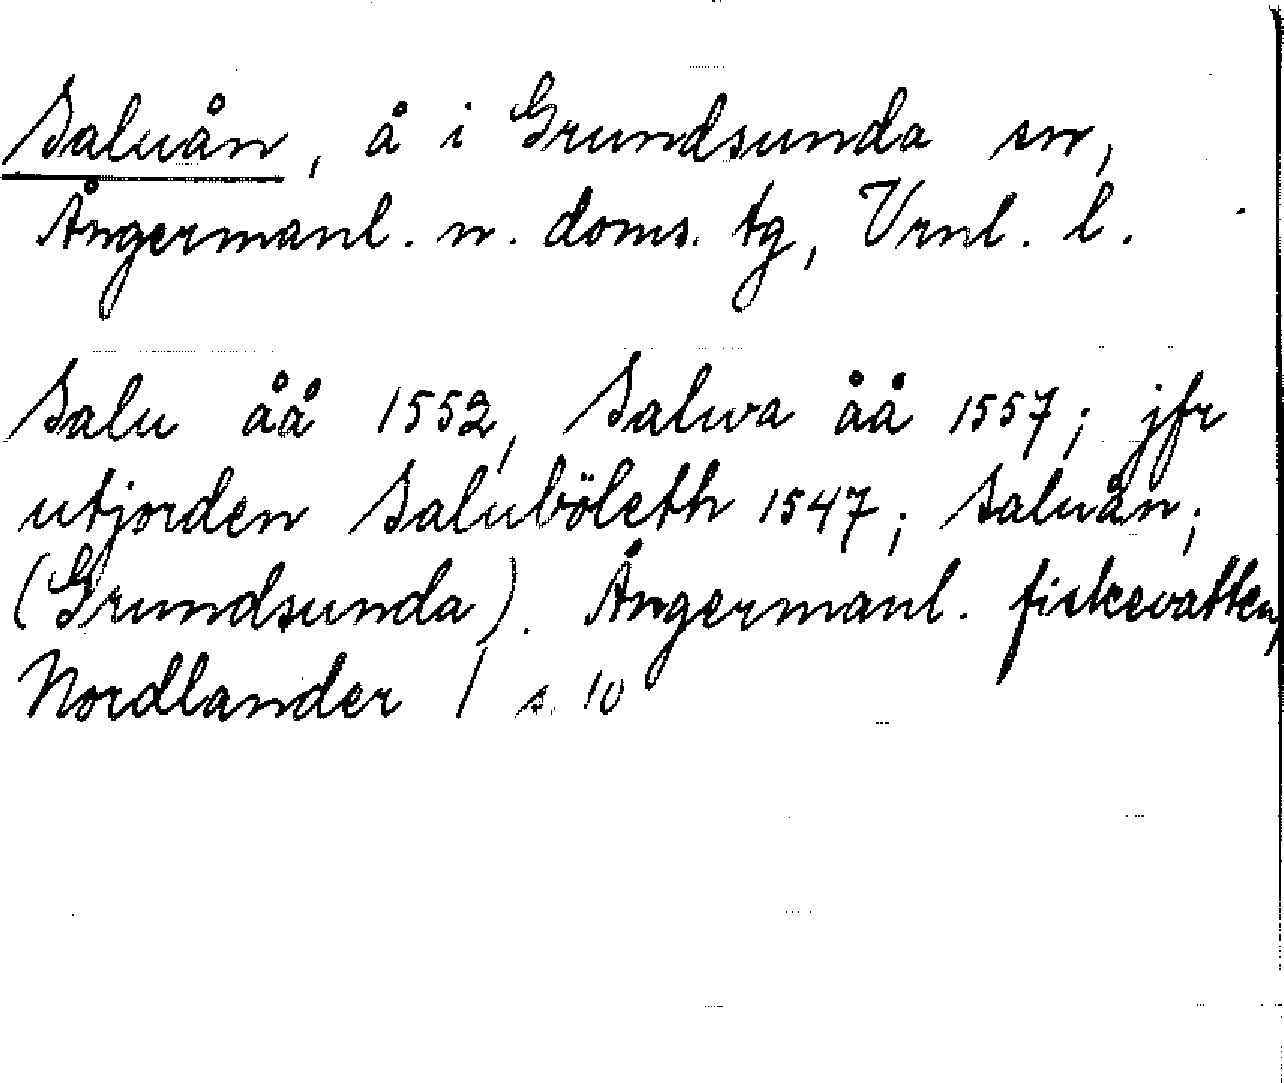 Saluån, å i Grundsunda sn,
Ångermanl. n. doms. tg, Vrnl. l.
Salu åå 1552, Salwa åå 1557; jfr
utjorden Saluböleth 1547; Saluån;
(Grundsunda). Ångermanl. fiskevatten,
Nordlander 1 s. 10